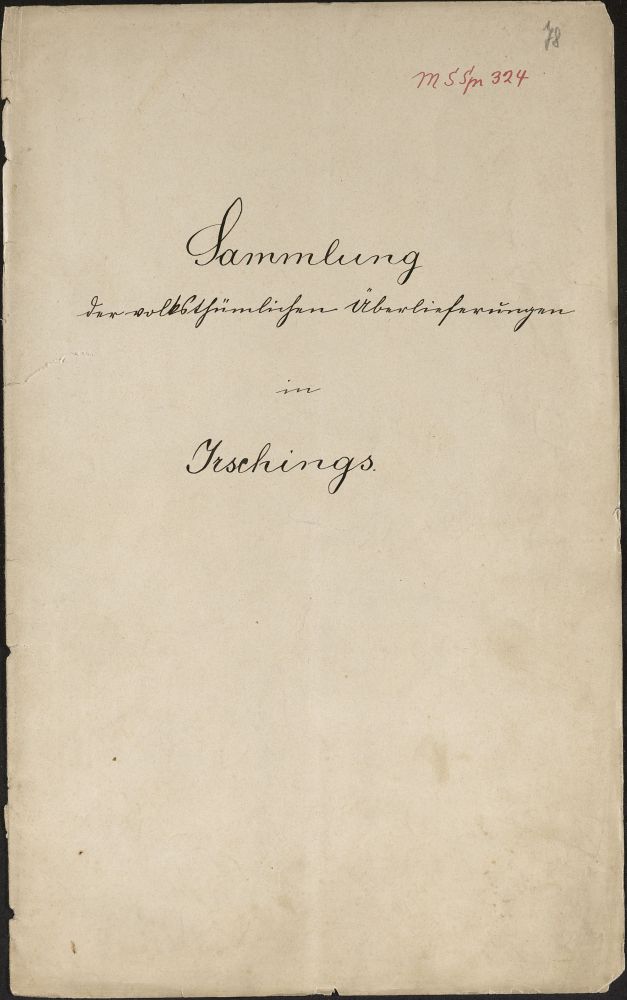 78
M S Sp 324
Sammlung
der volksthümlichen Überlieferungen
in
Irschings.